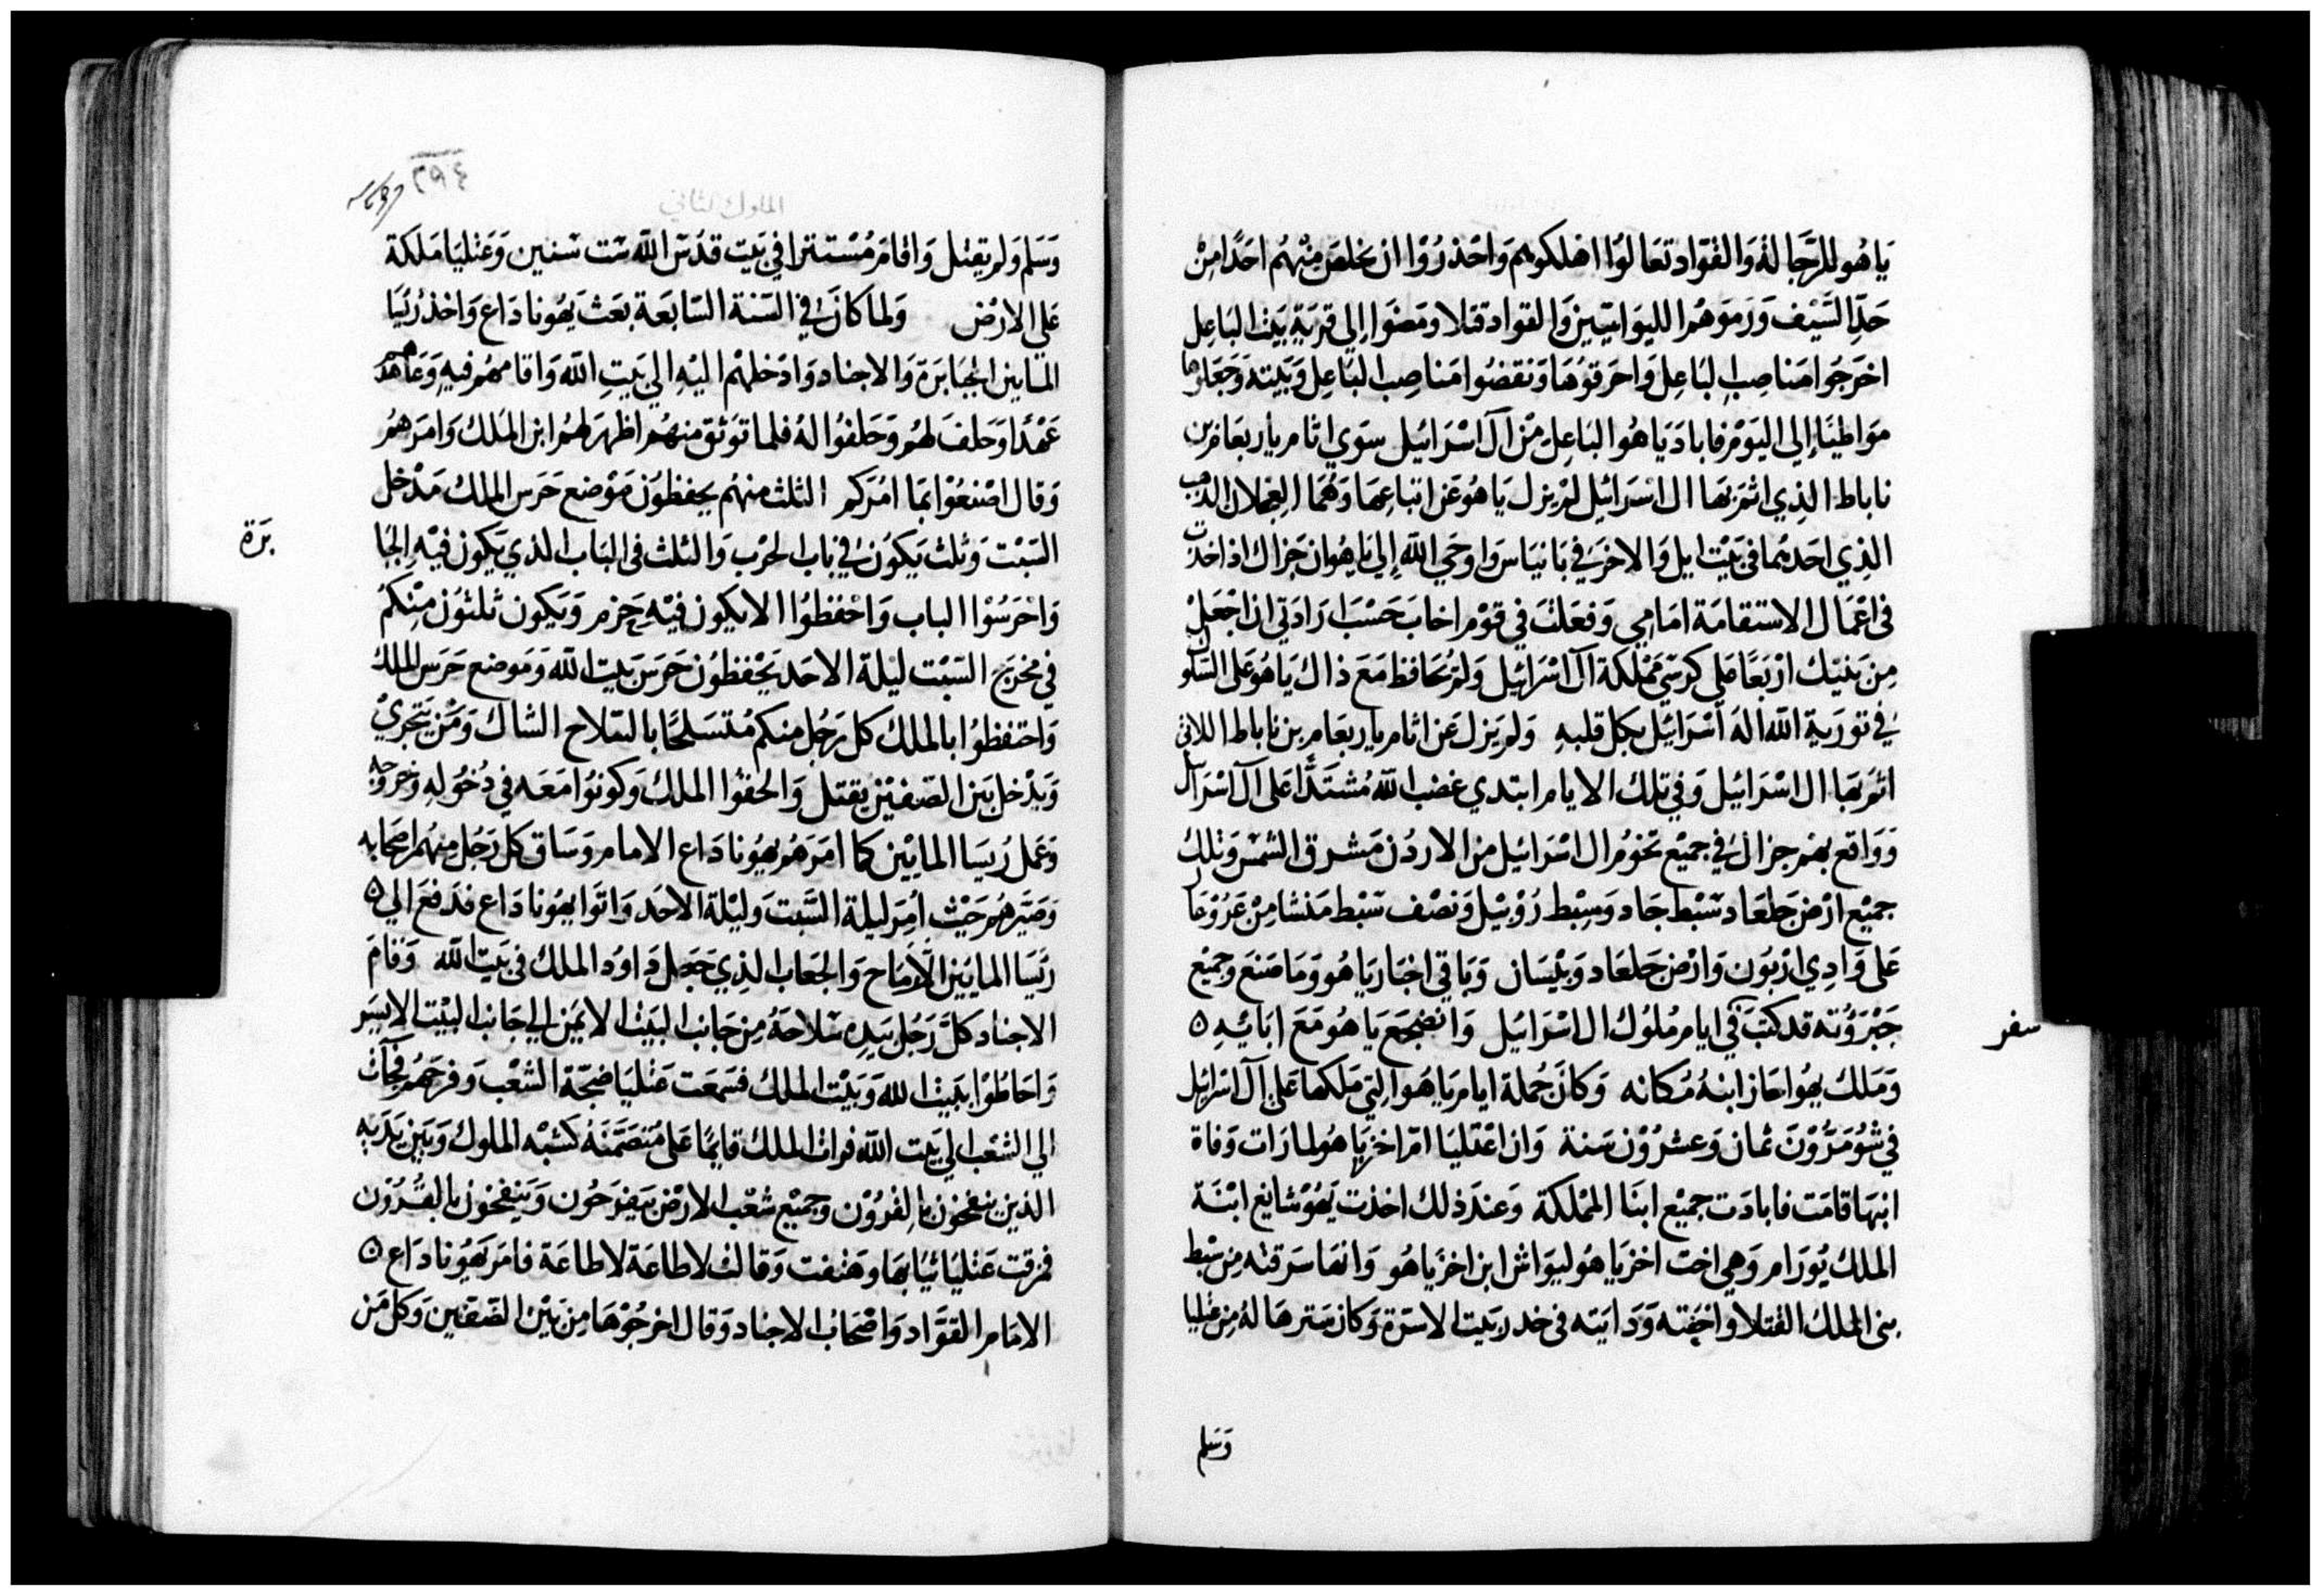 ياهو للرجالة والقواد تعالوا اهلكوهم واحذروا ان يخلص منهم احدا من
حد السيف ورموهم الليواتيين والقواد قتلا ومضوا إلي قرية بيت الباعل
اخرجوا مناصب الباعل واحرقوها ونقضوا مناصب الباعل وبيته وجعلوها
مواطيًا إلي اليوم فاباد ياهوا الباعل من آل اسرائيل سوي اثام ياربعام بن
ناباط الذي اثم بها ال اسرائيل لم يزل ياهو عن اتباعها وهما العجلان الذهب
الذي احدهما في بيت ايل والاخر في بانياس واوحي الله إلي ياهو ان جزاك اذ اخذت
في اعمال الاستقامة امامي وفعلت في قوم اخاب حسب ارادتي ان اجعل
من بنيك اربعا علي كرسي مملكة آل اسرائيل ولم يحافظ مع ذاك ياهو على السلوك
في تورية الله اله اسرائيل بكل قلبه ولم يزل عن اثام ياربعام بن ناباط اللاتي
اثم بها ال اسرائيل وفي تلك الايام ابتدي غضب الله مشتدًا على آل اسرايل
وواقع بهم جزال في جميع تخوم ال اسرائيل من الاردن مشرق الشمس وتلك
جميع ارض جلعاد سبط جاد وسبط روبيل ونصف سبط منشا من عروعار
على وادي اربون وارض جلعاد وبيسان وباقي اخبار ياهو وما صنع وجميع
جبروته قد كتب في ايام ملوك ال اسرائيل وانضجع ياهو مع ابائه ٥
سفر
وملك يهواحاز ابنه مكانه وكان جملة ايام ياهوا التي ملكها على آل اسرائيل
في شومرون ثمان وعشرون سنة وان اعتليا ام اخزياهو لما رات وفاة
ابنها قامت فابادت جميع ابنا المملكة وعند ذلك اخذت يهوشابغ ابنة
الملك يورام وهي اخت اخزياهو ليواش ابن اخزياهو وانها سرقته من سبط
بني الملك القتلا واخفته ودايته في خدر بيت الاسرة وكان سترها له من عثليا
وسلم
٢٩٤
الملوك الثاني
وسلم ولم يقتل واقام مستترا في بيت قدس الله ست سنين وعثليا ملكة
على الارض ولما كان في السنة السابعة بعث يهوناداع واخذ رئيسا
المايين الجبابرة والاجناد وادخلهم اليه الي بيت الله واقامهم فيه وعاهدهم
عهدًا وحلف لهم وحلفوا له فلما توثق منهم اظهر لهم ابن الملك وامرهم
وقال اصنعوا بما امركم الثلث منهم يحفظون موضع حرس الملك مدخل
السبت وثلث يكون في باب الحرب والثلث في الباب الذي يكون فيه الجبا
برة
واحرسوا الباب واحفظوا الا يكون فيه حزم ويكون ثلثون منكم
في مخرج السبت ليلة الاحد يحفظون حرس بيت الله وموضع حرس الملك
واحتفظوا بالملك كل رجل منكم متسلحًا بالسلاح الشاك ومن يتجري
ويدخل بين الصفين يقتل والحفوا الملك وكونوا معه في دخوله وخروجه
وعمل رييسا المايين كما امرهم يهوناداع الامام وساق كل رجل منهم اصحابه
وصيرهم حيث امر ليلة السبت وليلة الاحد واتوا يهوناداع فدفع الي ٥
رييسا المايين الارماح والجعاب الذي جعل داود الملك في بيت الله وقام
الاجناد كل رجل بيده سلاحه من جانب البيت الايمن الي جانب البيت الايسر
واحاطوا ببيت الله وبيت الملك فسمعت عثليا ضجة الشعب وفرحهم فجات
الي الشعب الي بيت الله فرات الملك قايمًا على منصمنه كشبه الملوك وبين يديه
الذين ينفخون بالقرون وجميع شعب الارض يفرحون وينفخون بالقرون
فمزقت عثليا ثيابها وهتفت وقالت لا طاعة لا طاعة فامر يهوناداع ٥
الامام القواد واصحاب الاجناد وقال اخرجوها من بين الصفين وكل من